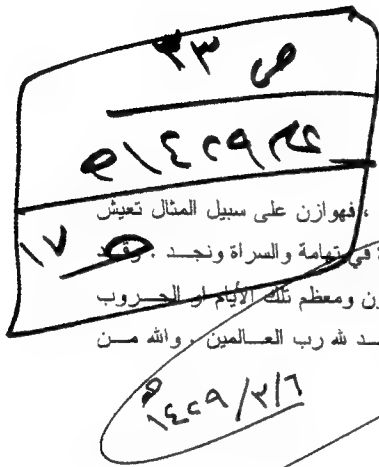 ص ٣٣
١٤٢٩ هـ
ص ١٧
، فهوازن على سبيل المثال تعيش
في تهامة والسراة ونجد .
ون ومعظم تلك الأيام او الحروب
ـد لله رب العالمين . والله من
١٤٢٩/٣/٦هـ